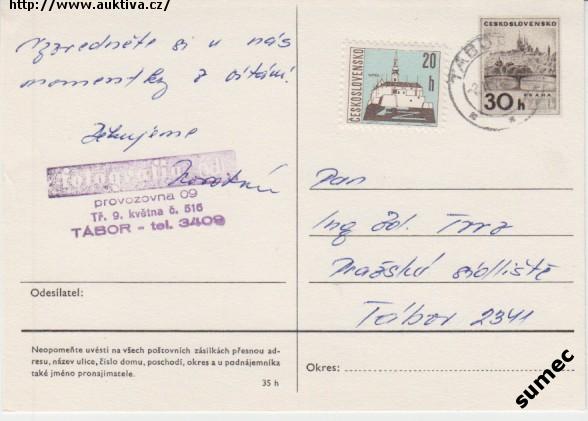 http://www.auktiva.cz/
Vyzvedněte si u nás
momentky z vítání!
Děkujeme
fotografia
provozovna 09
Tř. 9. května č. 516
TÁBOR - tel. 3409
Odesílatel:
Neopomeňte uvésti na všech poštovních zásilkách přesnou ad-
resu, název ulice, číslo domu, poschodí, okres a u podnájemníka
také jméno pronajímatele.
35 h
ČESKOSLOVENSKO
20
h
ČESKOSLOVENSKO
PRAHA
30 h
TÁBOR
Pan
Ing Zd.
Pražské sídliště
Tábor 2341
Okres:
sumec